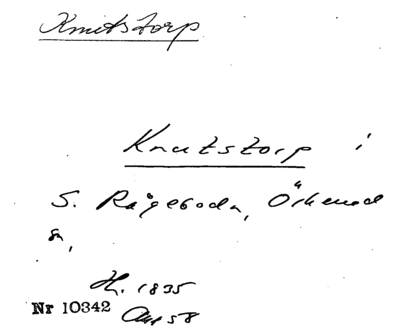 Knutstorp
Knutstorp i
S. Rågeboda, Örkened
sn,
H. 1835
Nr 10342 Avs 58